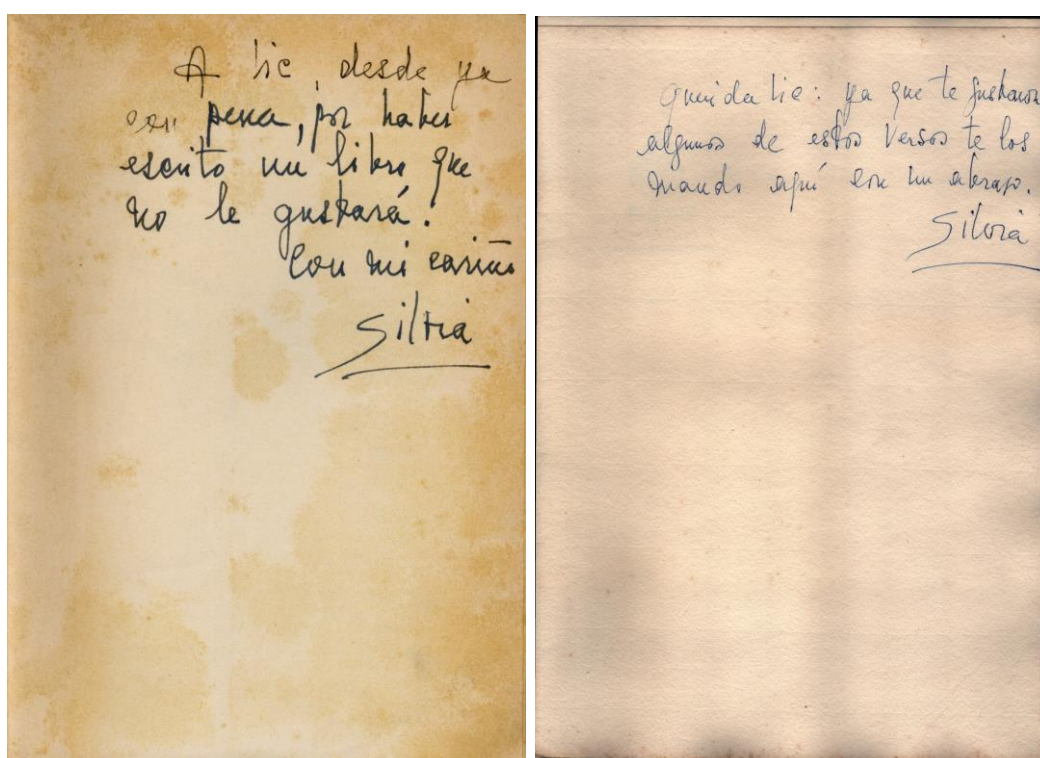 A Lic, desde ya
con pena, por haber
escrito un libro que
no le gustará.
Con mi cariño
Silvia
Querida Lic: ya que te gustaron
algunos de estos versos te los
mando aquí con un abrazo.
Silvia